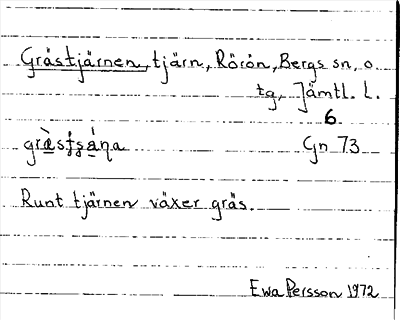 Grästjärnen, tjärn, Rörön, Bergs sn, o.
tg, Jämtl. l.
6
Gn 73
Runt tjärnen växer gräs.
Ewa Persson 1972